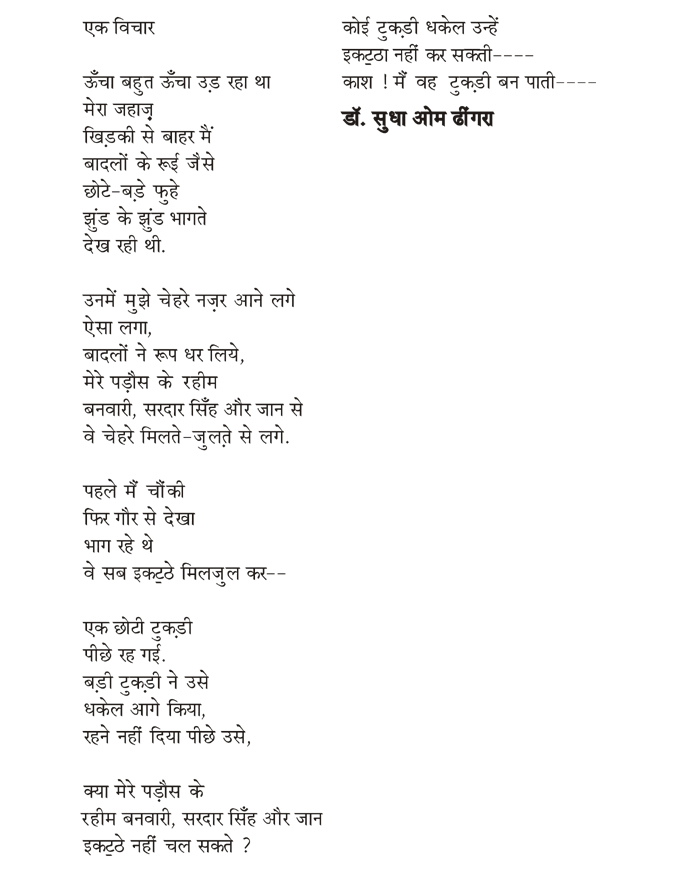 एक विचार
ऊँचा बहुत ऊँचा उड़ रहा था
मेरा जहाज़
खिड़की से बाहर मैं
बादलों के रूई जैसे
छोटे-बड़े फुहे
झुंड के झुंड भागते
देख रही थी.
उनमें मुझे चेहरे नज़र आने लगे
ऐसा लगा,
बादलों ने रूप धर लिये,
मेरे पड़ौस के रहीम
बनवारी, सरदार सिँह और जान से
वे चेहरे मिलते-जुलत़े से लगे.
पहले मैं चौंकी
फिर गौर से देखा
भाग रहे थे
वे सब इकट्ठे मिलजुल कर--
एक छोटी टुकड़ी
पीछे रह गई.
बड़ी टुकड़ी ने उसे
धकेल आगे किया,
रहने नहीं दिया पीछे उसे,
क्या मेरे पड़ौस के
रहीम बनवारी, सरदार सिँह और जान
इकट्ठे नहीं चल सकते ?
कोई टुकड़ी धकेल उन्हें
इकट्ठा नहीं कर सकती----
काश ! मैं वह टुकड़ी बन पाती----
डॉ. सुधा ओम ढींगरा